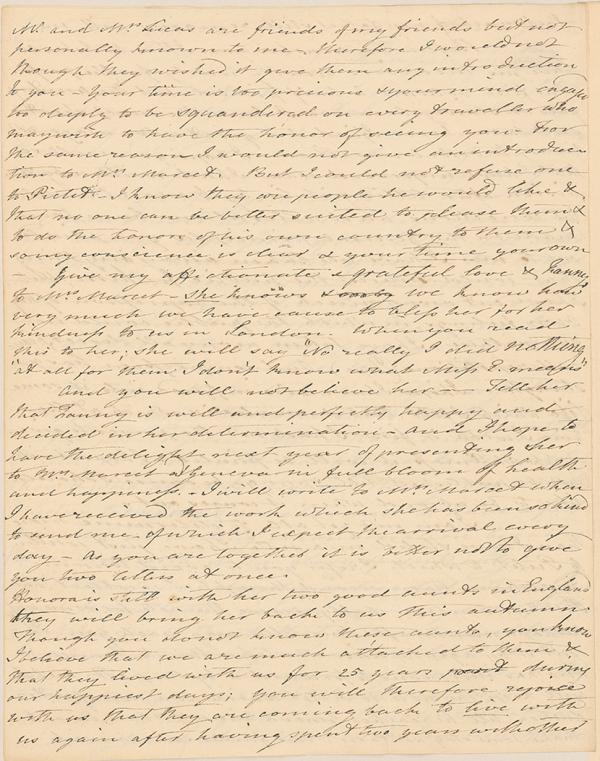 Mr. and Mrs. Lucas are friends of my friends but not
personally known to me - therefore I would not
though they wished it give them any introduction
to you - Your time is too precious & your mind engaged
too deeply to be squandered on every traveller who
may wish to have the honor of seeing you - For
the same reason I would not give an introduc
tion to Mrs. Marcet. But I could not refuse one
to Pictet - I know they are people he would like &
that no one can be better suited to please them &
to do the honors of his own country to them &
so my conscience is clear & your time your own
- Give my affectionate & grateful love & Fanny's
to Mrs. Marcet - She knows & we know how
very much we have cause to bless her for her
kindness to us in London. When you read
this to her, she will say "No really I did nothing
at all for them I don't know what Miss E. means"
and you will not believe her - Tell her
that Fanny is well and perfectly happy and
decided in her determination - and I hope to
have the delight next year of presenting her
to Mrs. Marcet at Geneva in full bloom of health
and happiness. - I will write to Mrs. Marcet when
I have received the work which she has been so kind
to send me - of which I expect the arrival every
day - As you are together it is better not to give
you two letters at once.
Honora is still with her two good aunts in England
they will bring her back to us this autumn.
Though you do not know these aunts, you know
I believe that we are much attached to them &
that they lived with us for 25 years during
our happiest days; you will therefore rejoice
with us that they are coming back to live with
us again after having spent two years with other